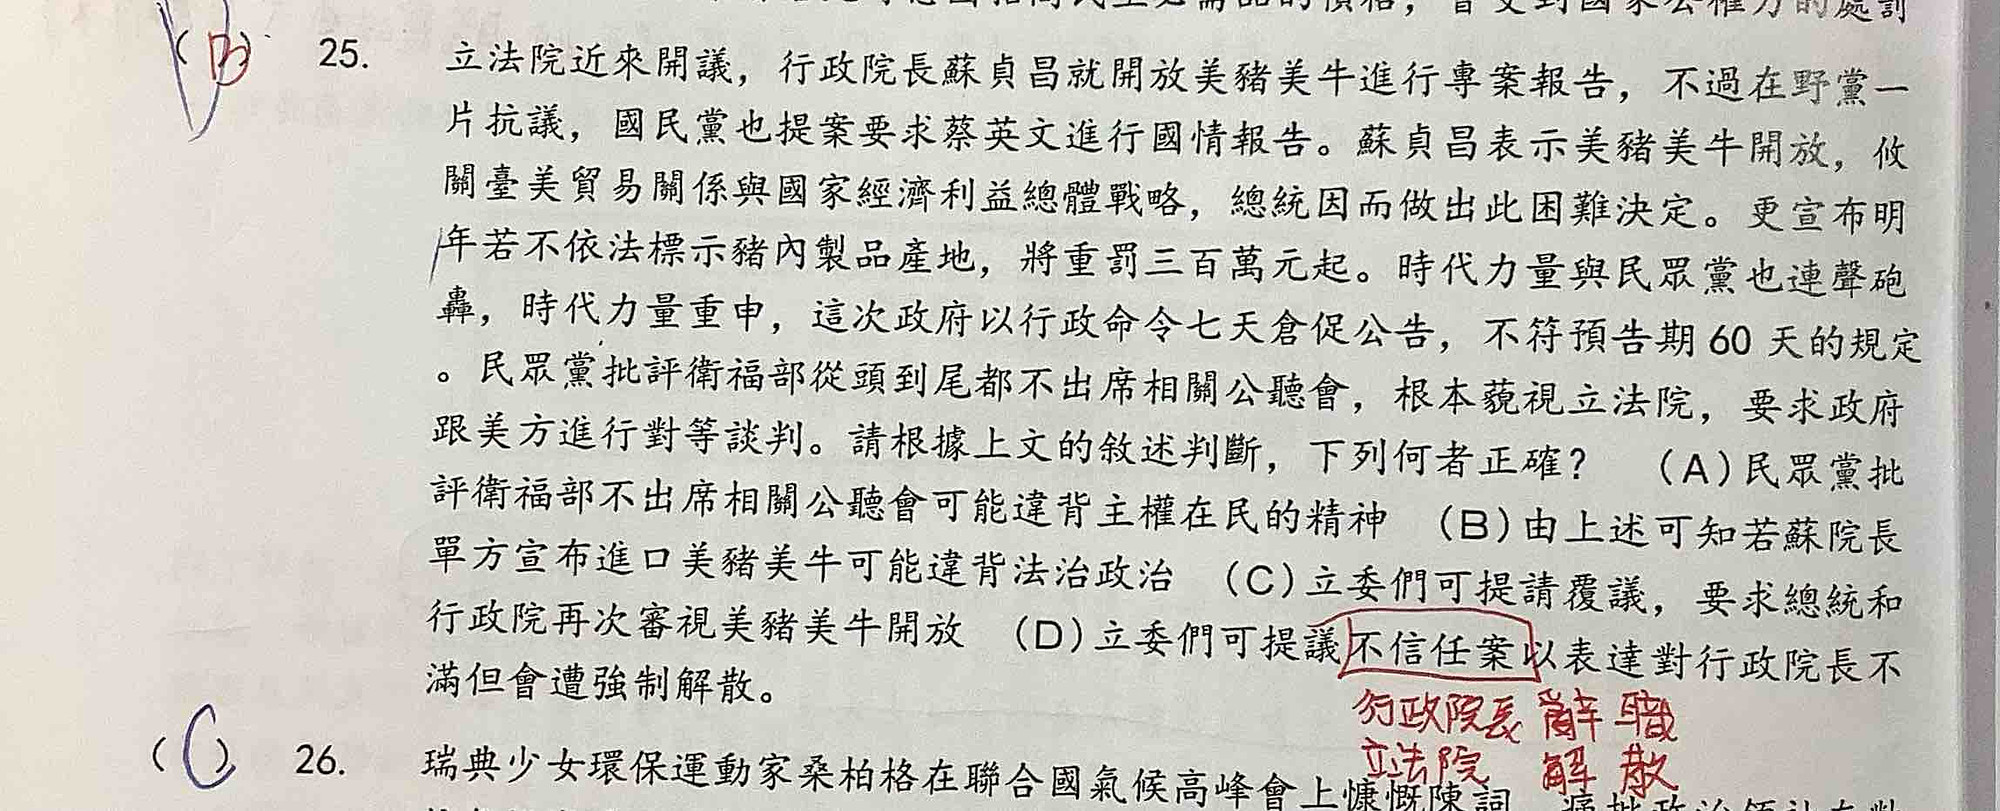 會受到國家公權力的處罰
(B) 25. 立法院近來開議，行政院長蘇貞昌就開放美豬美牛進行專案報告，不過在野黨一
片抗議，國民黨也提案要求蔡英文進行國情報告。蘇貞昌表示美豬美牛開放，攸
關臺美貿易關係與國家經濟利益總體戰略，總統因而做出此困難決定。更宣布明
年若不依法標示豬內製品產地，將重罰三百萬元起。時代力量與民眾黨也連聲砲
轟，時代力量重申，這次政府以行政命令七天倉促公告，不符預告期 60 天的規定
。民眾黨批評衛福部從頭到尾都不出席相關公聽會，根本藐視立法院，要求政府
跟美方進行對等談判。請根據上文的敘述判斷，下列何者正確？ (A)民眾黨批
評衛福部不出席相關公聽會可能違背主權在民的精神 (B)由上述可知若蘇院長
單方宣布進口美豬美牛可能違背法治政治 (C)立委們可提請覆議，要求總統和
行政院再次審視美豬美牛開放 (D)立委們可提議不信任案以表達對行政院長不
滿但會遭強制解散。
行政院長 辭職
立法院 解散
(C) 26. 瑞典少女環保運動家桑柏格在聯合國氣候高峰會上慷慨陳詞